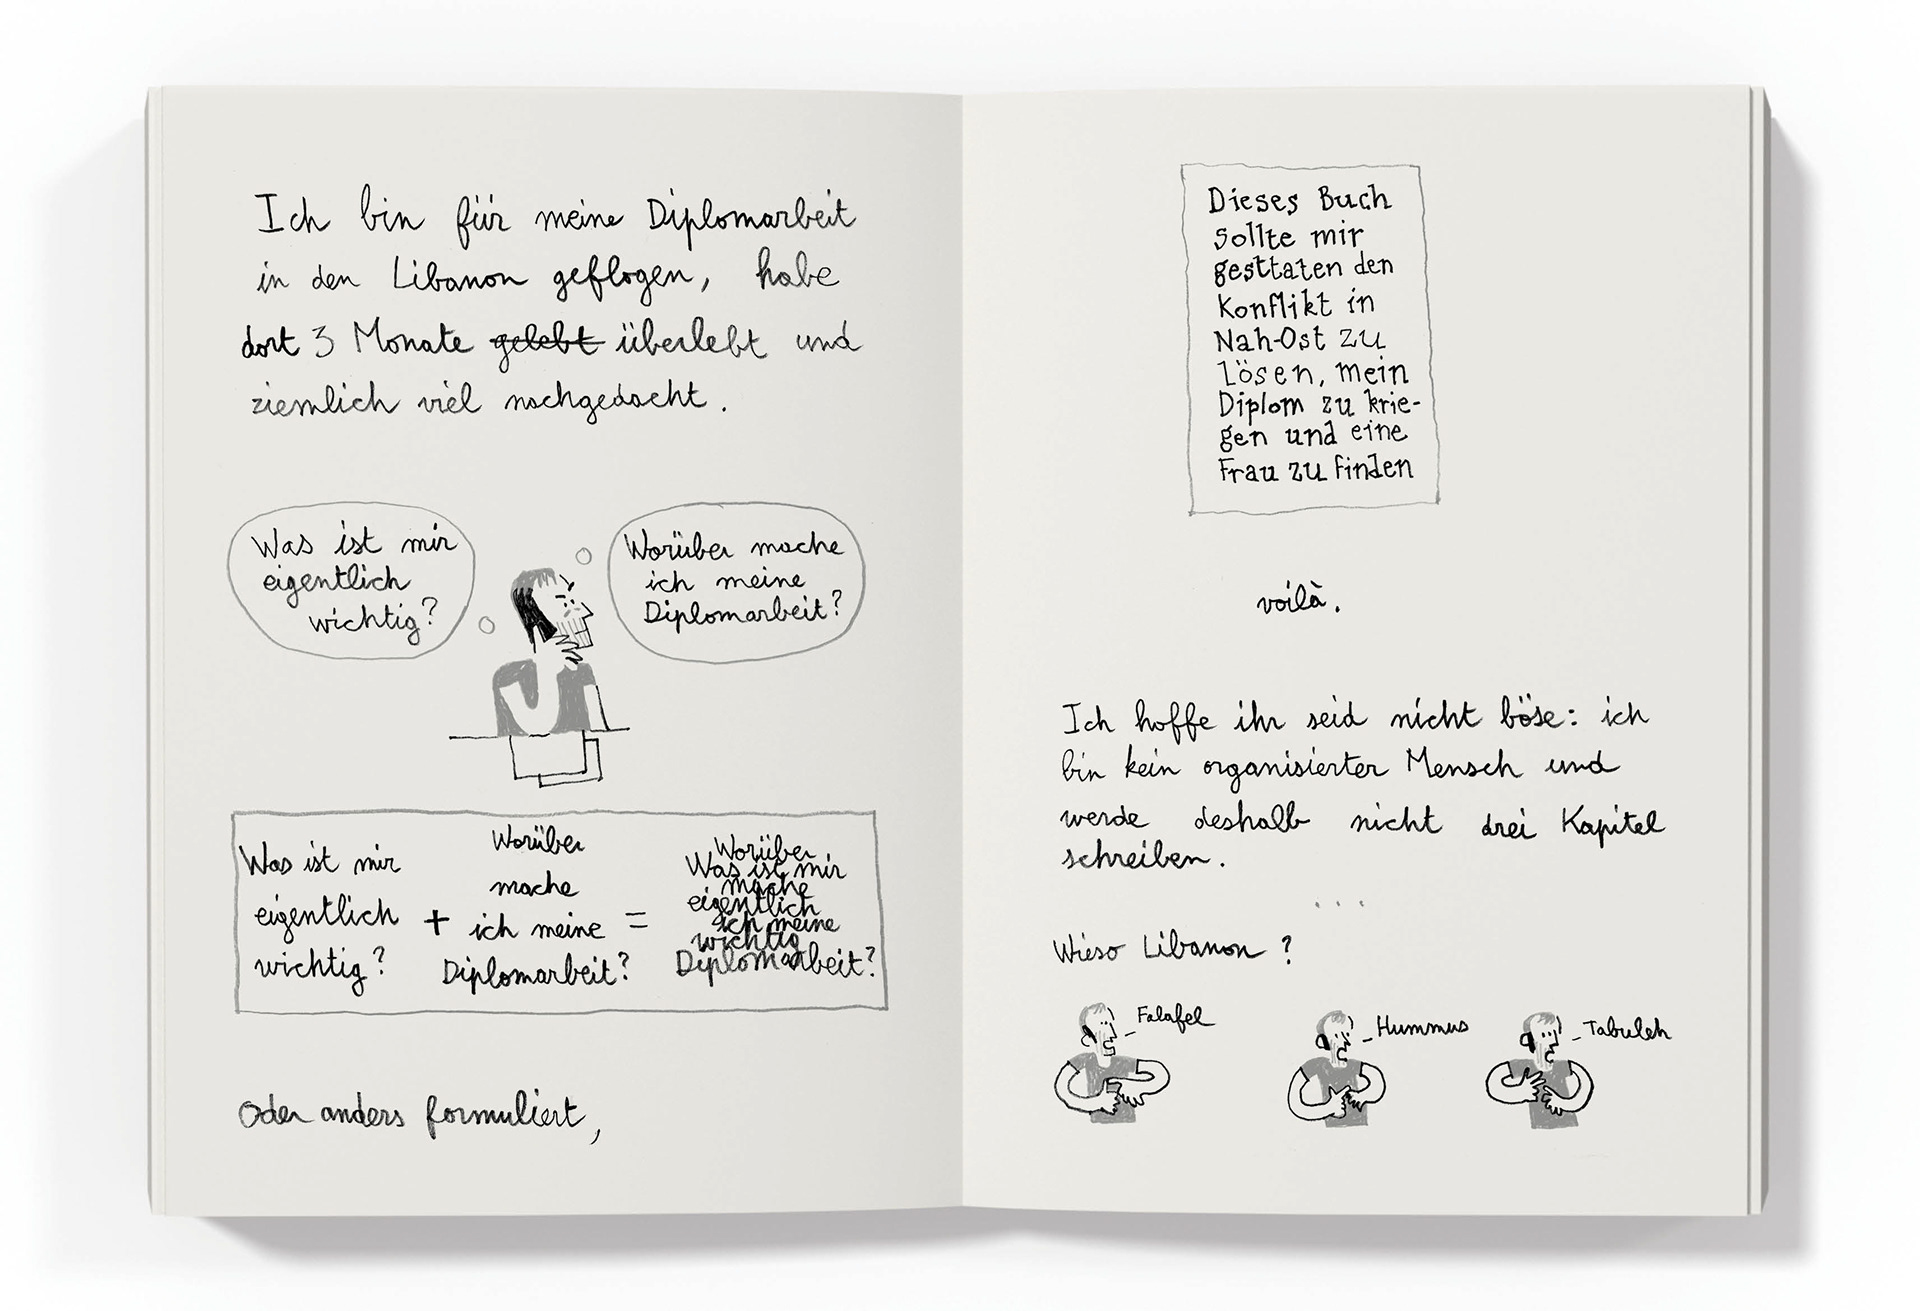 Ich bin für meine Diplomarbeit
in den Libanon geflogen, habe
dort 3 Monate gelebt überlebt und
ziemlich viel nachgedacht.
Was ist mir
eigentlich
wichtig?
Worüber mache
ich meine
Diplomarbeit?
Was ist mir
eigentlich
wichtig?
+
Worüber
mache
ich meine
Diplomarbeit?
=
Worüber
Was ist mir
mache
eigentlich
ich meine
wichtig
Diplomarbeit?
Oder anders formuliert,
Dieses Buch
sollte mir
gesttaten den
Konflikt in
Nah-Ost zu
lösen, mein
Diplom zu krie-
gen und eine
Frau zu finden
voilà.
Ich hoffe ihr seid nicht böse: ich
bin kein organisierter Mensch und
werde deshalb nicht drei Kapitel
schreiben.
...
Wieso Libanon?
Falafel
Hummus
Tabuleh